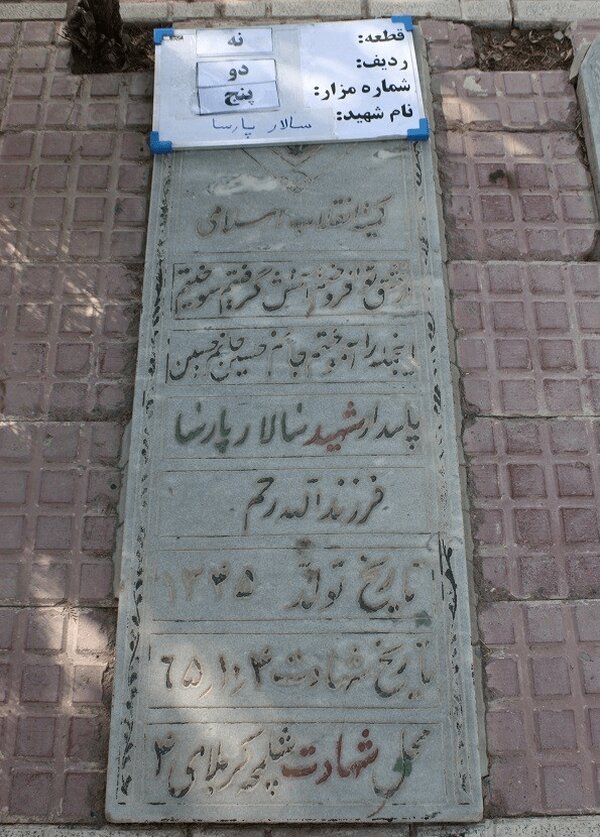 قطعه: نه
ردیف: دو
شماره مزار: پنج
نام شهید: سالار پارسا
کمیته انقلاب اسلامی
عشق تو افروختم آتش گرفتم سوختم
اینجمله را آموختم جانم حسین جانم حسین
پاسدار شهید سالار پارسا
فرزند الله رحم
تاریخ تولد ۱۳۴۵
تاریخ شهادت ۴ر۱ر۶۵
محل شهادت شلمچه کربلای ۴